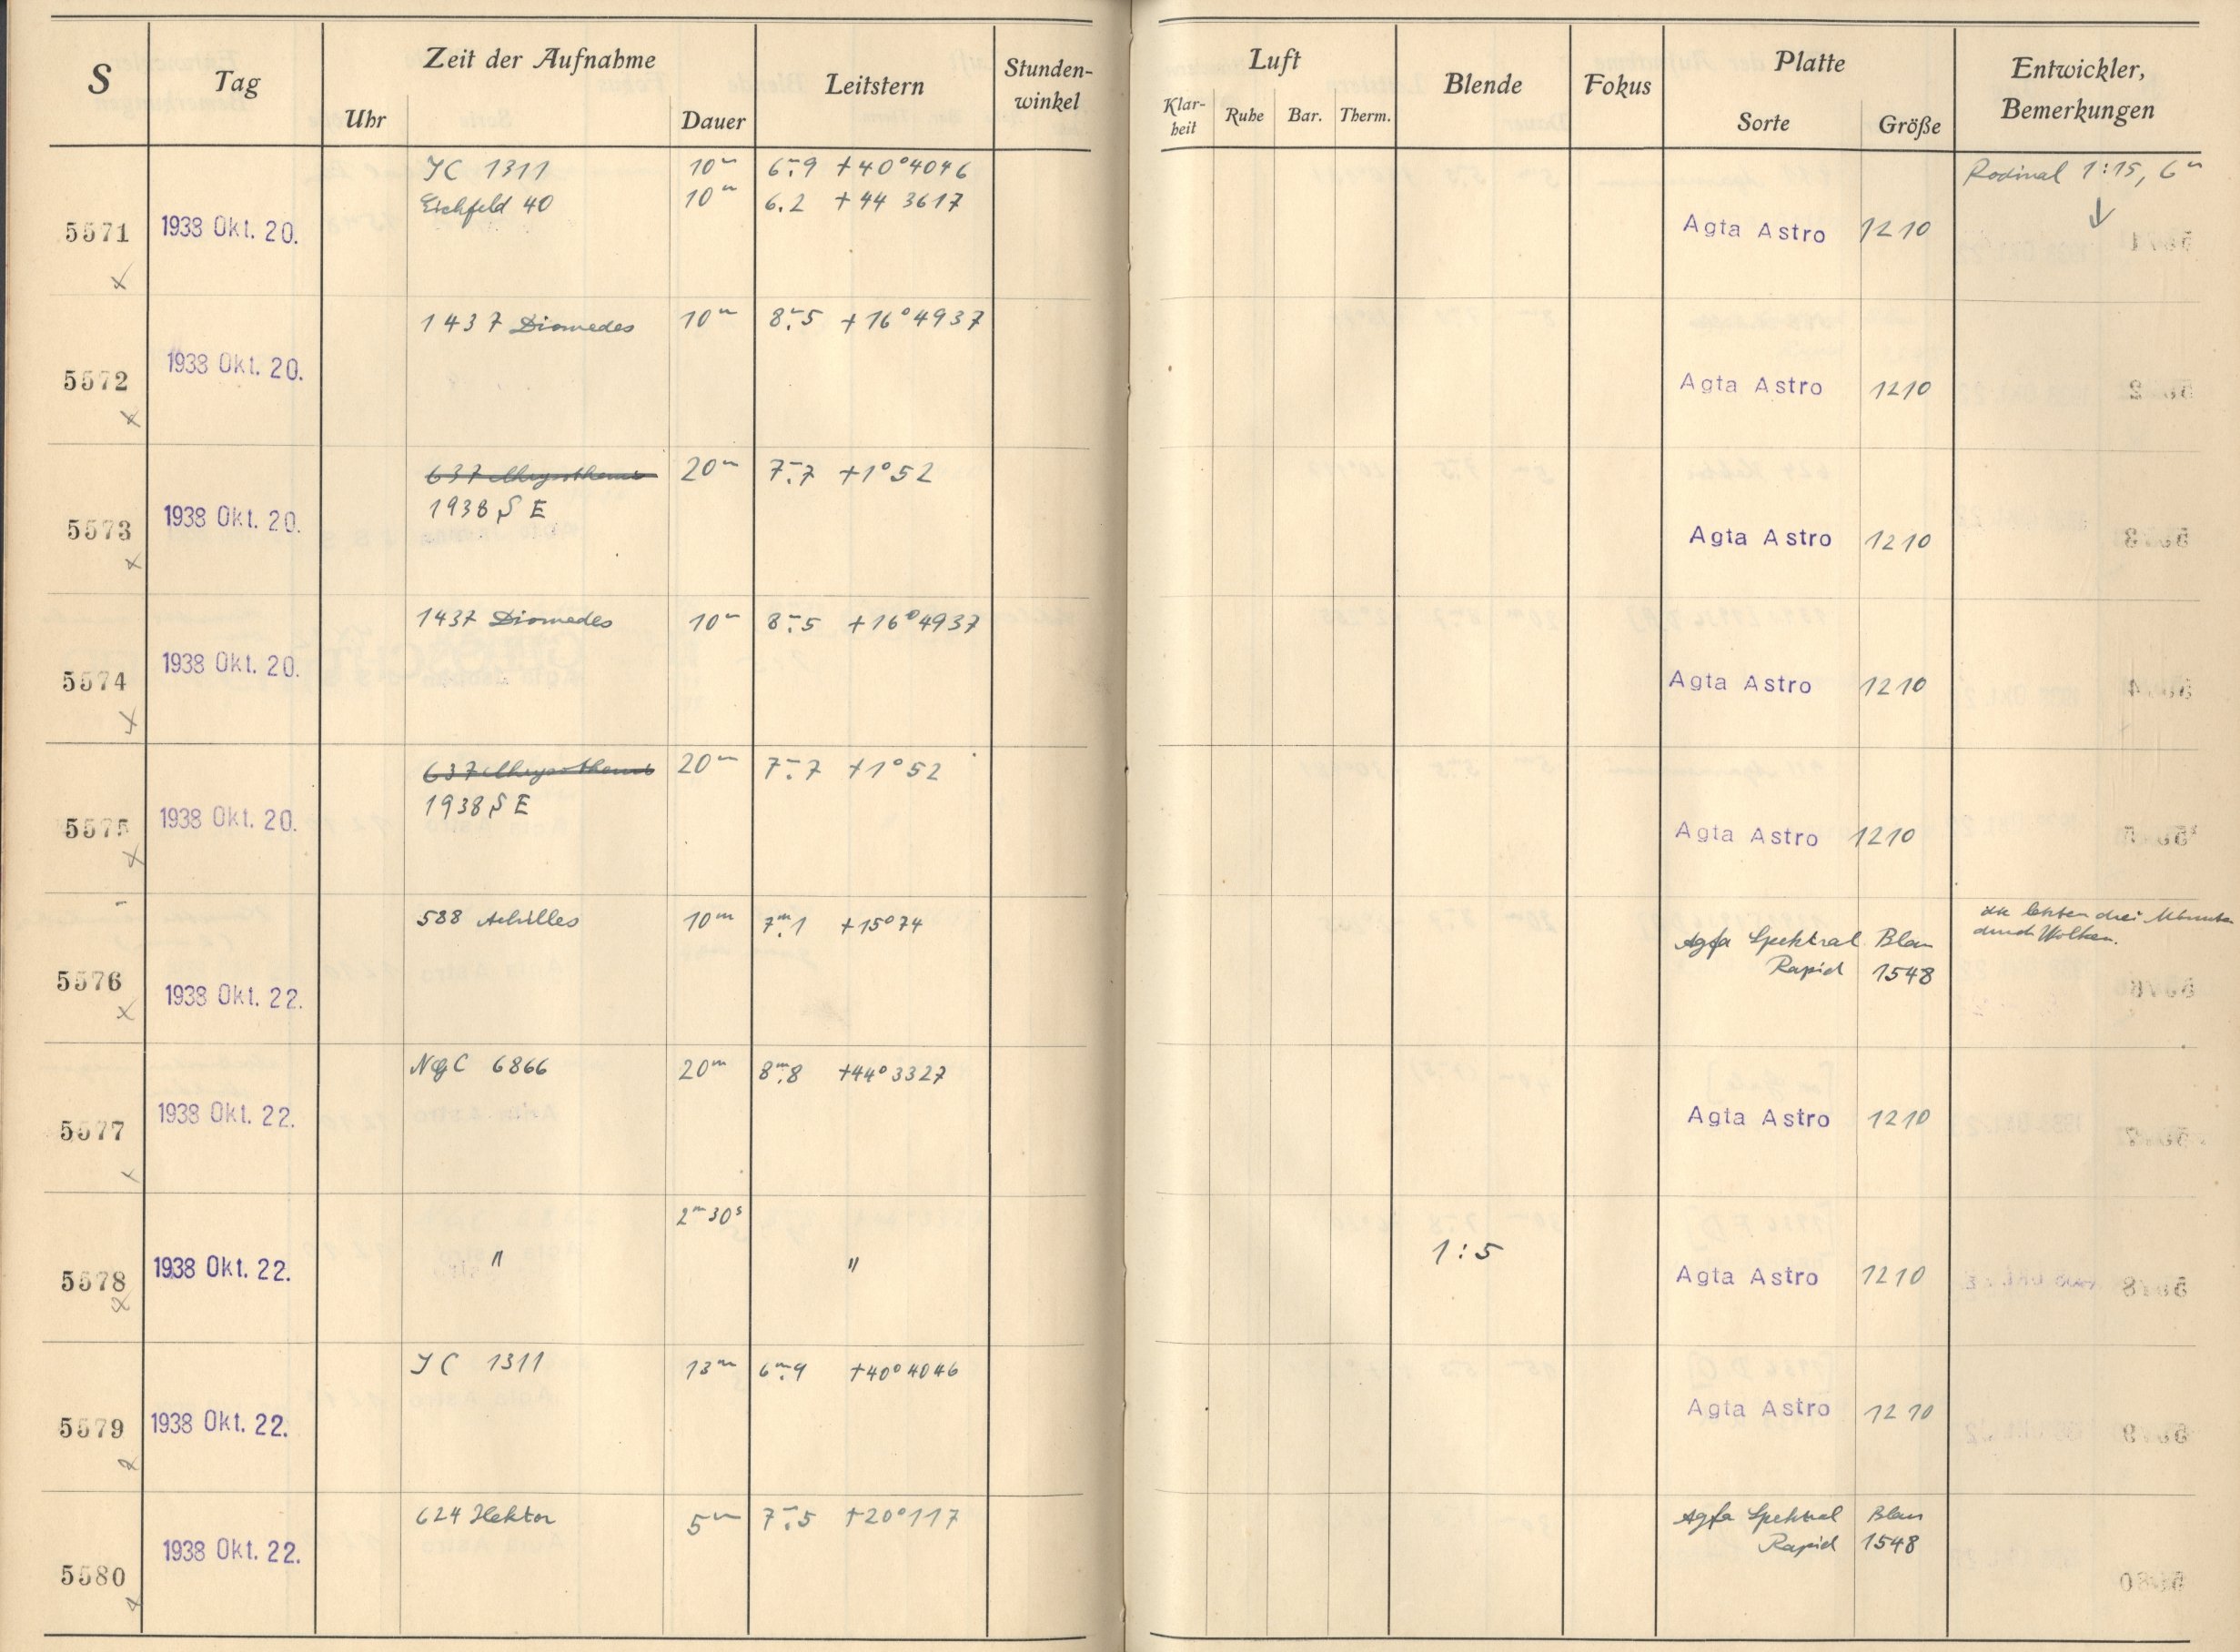 S Tag Zeit der Aufnahme Leitstern Stunden-winkel Luft Blende Fokus Platte Entwickler, Bemerkungen
Uhr Dauer Klar-heit Ruhe Bar. Therm. Sorte Größe
JC 1311 10m 6m.9 +40°4046 Rodinal 1:15, 6m
Eichfeld 40 10m 6.2 +44 3617 ↓
5571 1938 Okt. 20. Agfa Astro 1210
x
1437 Diomedes 10m 8m.5 +16°4937
5572 1938 Okt. 20. Agfa Astro 1210
x
637 Chrysothemis 20m 7m.7 +1°52
1938 S E
5573 1938 Okt. 20. Agfa Astro 1210
x
1437 Diomedes 10m 8m.5 +16°4937
5574 1938 Okt. 20. Agfa Astro 1210
x
637 Chrysothemis 20m 7m.7 +1°52
1938 S E
5575 1938 Okt. 20. Agfa Astro 1210
x
588 Achilles 10m 7m.1 +15°74 die letzten drei Minuten
durch Wolken.
Agfa Spektral Blau
Rapid 1548
5576 1938 Okt. 22.
x
NGC 6866 20m 8m.8 +44°3327
5577 1938 Okt. 22. Agfa Astro 1210
x
2m30s
5578 1938 Okt. 22. " " 1:5 Agfa Astro 1210
x
JC 1311 13m 6m.9 +40°4046
5579 1938 Okt. 22. Agfa Astro 1210
x
624 Hektor 5m 7m.5 +20°117 Agfa Spektral Blau
Rapid 1548
5580 1938 Okt. 22.
x